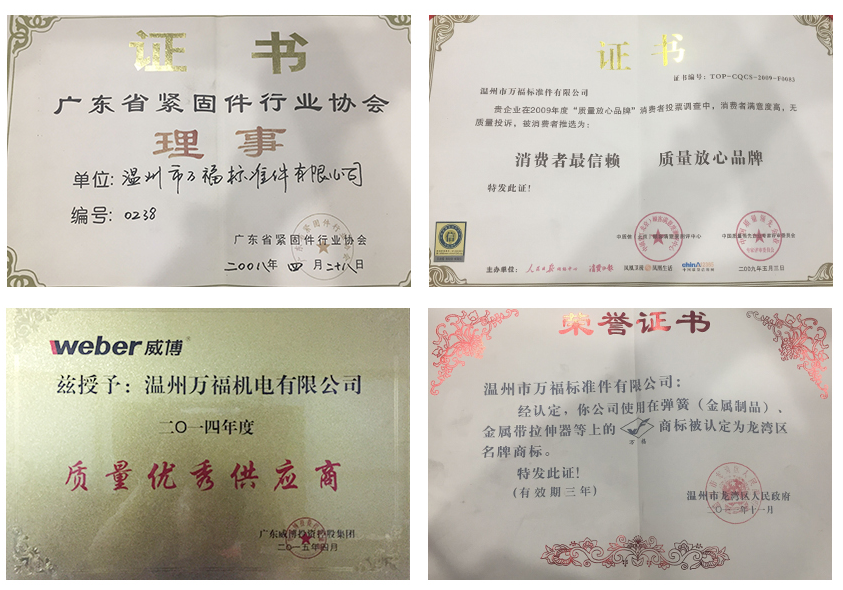 证 书
广东省紧固件行业协会
理 事
单位:温州市万福标准件有限公司
编号:0238
广东省紧固件行业协会
二00八年 四 月二十八日
证 书
证书编号:TOP-CQCS-2009-F0083
温州市万福标准件有限公司
贵企业在2009年度“质量放心品牌”消费者投票调查中,消费者满意度高,无
质量投诉,被消费者推选为:
消费者最信赖 质量放心品牌
特发此证!
主办单位:
凤凰卫视 凤凰生活
二00九年五月三日
weber威博®
兹授予:温州万福机电有限公司
二〇一四年度
质量优秀供应商
广东威博投资控股集团
二〇一五年四月
荣誉证书
温州市万福标准件有限公司:
经认定,你公司使用在弹簧(金属制品)、
金属带拉伸器等上的 万福 商标被认定为龙湾区
名牌商标。
特发此证!
(有效期三年)
温州市龙湾区人民政府
年十一月